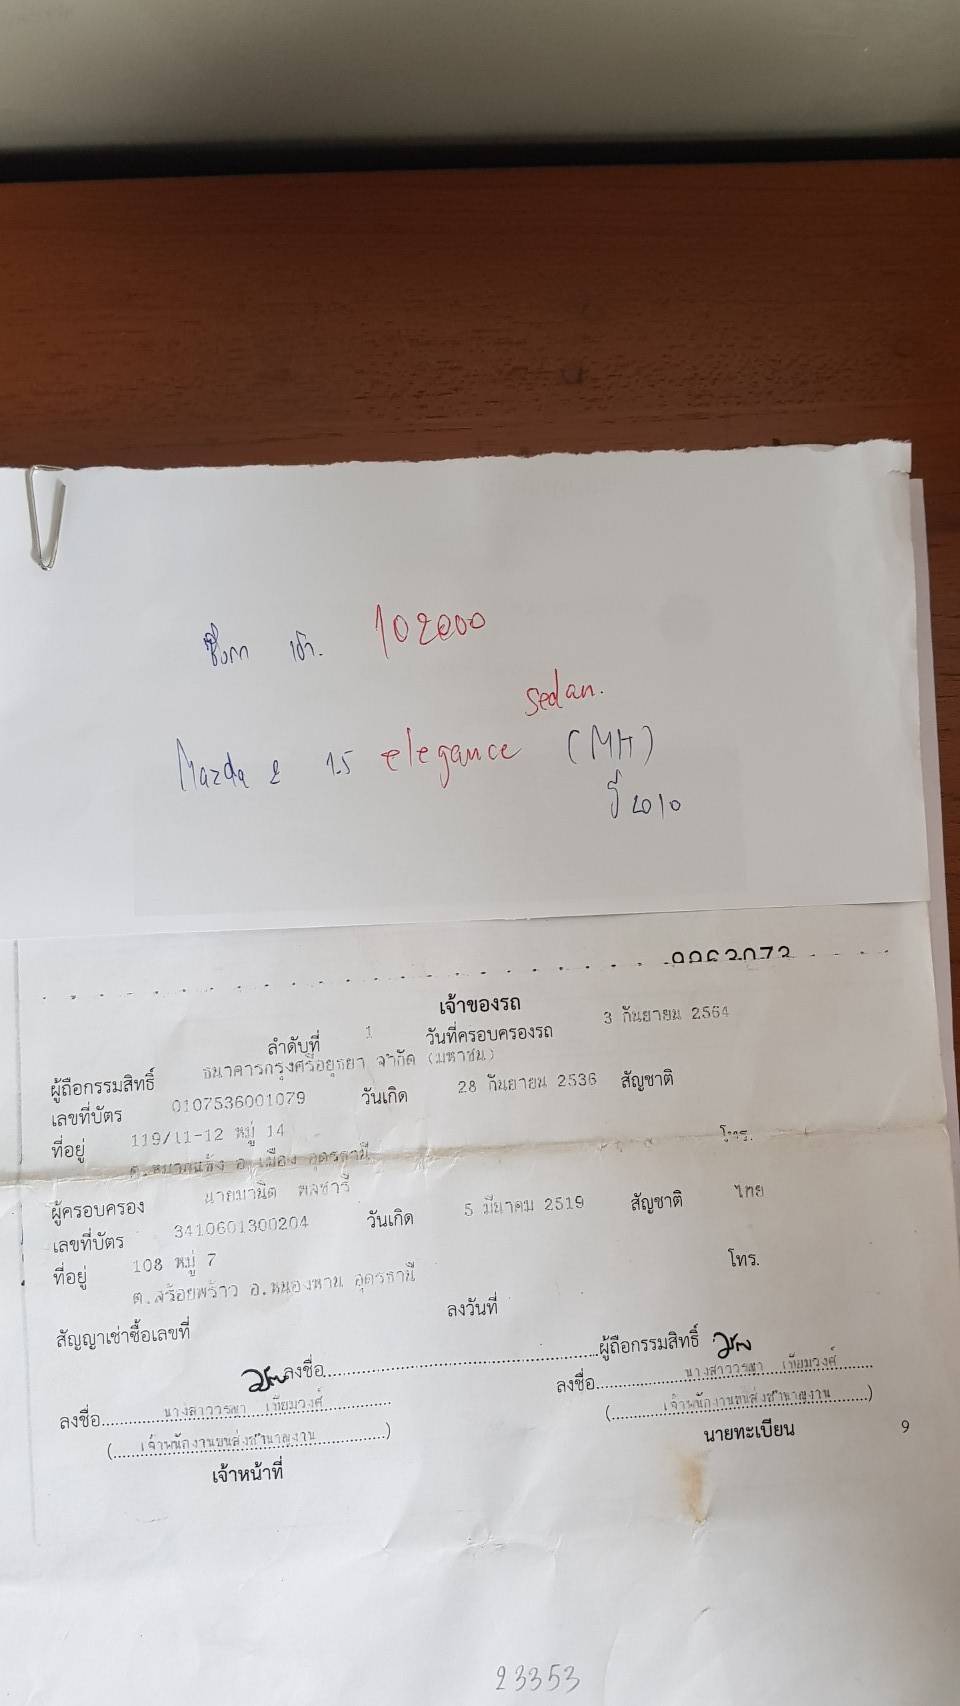 ซื้อมา เข้า. 102000
sedan.
Mazda 2 1.5 elegance (MH)
ปี 2010
เจ้าของรถ
ลำดับที่ 1 วันที่ครอบครองรถ 3 กันยายน 2564
ผู้ถือกรรมสิทธิ์ ธนาคารกรุงศรีอยุธยา จำกัด (มหาชน)
เลขที่บัตร 0107536001079 วันเกิด 28 กันยายน 2536 สัญชาติ
ที่อยู่ 119/11-12 หมู่ 14 โทร.
ต.หมากแข้ง อ.เมือง อุดรธานี
ผู้ครอบครอง นายมานิต พลชารี
เลขที่บัตร 3410601300204 วันเกิด 5 มีนาคม 2519 สัญชาติ ไทย
ที่อยู่ 108 หมู่ 7 โทร.
ต.สร้อยพร้าว อ.หนองหาน อุดรธานี
สัญญาเช่าซื้อเลขที่ ลงวันที่
ลงชื่อ ผู้ถือกรรมสิทธิ์
ลงชื่อ นางสาววรรษา เทียมวงศ์ ลงชื่อ นางสาววรรษา เทียมวงศ์
(เจ้าพนักงานขนส่งชำนาญงาน) (เจ้าพนักงานขนส่งชำนาญงาน)
เจ้าหน้าที่ นายทะเบียน 9
23353